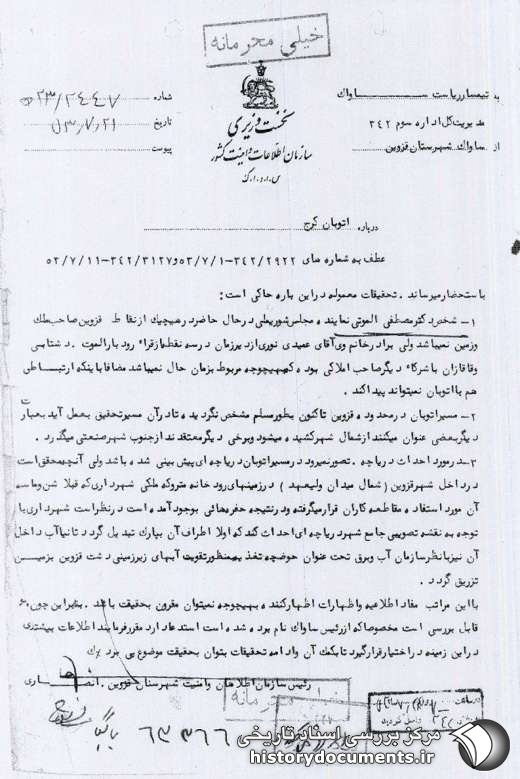 خیلی محرمانه
به تیمسار ریاست ساواک
مدیریت کل اداره سوم ۳۴۲
از ساواک شهرستان قزوین
نخست وزیری
سازمان اطلاعات و امنیت کشور
س.ا.و.ا.ک
شماره ۲۳/۲۴۴۷ ه
تاریخ ۵۳/۷/۲۱
پیوست
درباره اتوبان کرج
عطف به شماره های ۳۴۲/۲۹۲۲-۵۳/۷/۱ و ۳۴۲/۳۱۲۷-۵۳/۷/۱۱
باستحضار میرساند. تحقیقات معموله در این باره حاکی است :
۱- شخص دکتر مصطفی الموتی نماینده مجلس شورایملی در حال حاضر در هیچیک از نقاط قزوین صاحب ملک
و زمین نمیباشد ولی برادر خانم وی آقای عمیدی نوری از دیر زمان در سه نقطه از قراء رود بار الموت. دشتابی
و قاقازان با شرکاء دیگر صاحب املاکی بوده که بهیچوجه مربوط بزمان حال نمیباشد مضافا باینکه ارتباطی
هم با اتوبان نمیتواند پیدا کند.
۲- مسیر اتوبان در محدوده قزوین تاکنون بطور مسلم مشخص نگردیده تا در آن مسیر تحقیق بعمل آید بعبارت
دیگر بعضی عنوان میکنند از شمال شهر کشیده میشود و برخی دیگر معتقدند از جنوب شهر صنعتی میگذرد.
۳- در مورد احداث دریاچه. تصور نمیرود در مسیر اتوبان دریاچه ای پیش بینی شده باشد ولی آنچه محقق است
در داخل شهر قزوین (شمال میدان ولیعهد) در زمینهای رودخانه متروکه ملکی شهرداری که قبلا شن و ماسه
آن مورد استفاده مقاطعه کاران قرار میگرفته و در نتیجه حفره هائی بوجود آمده است در نظر است شهرداری با
توجه به نقشه تصویبی جامع شهر دریاچه ای احداث کند که اولا اطراف آن بپارک تبدیل گردد ثانیا آب داخل
آن نیز با نظر سازمان آب و برق تحت عنوان حوضچه تغذیه بمنظور تقویت آبهای زیرزمینی دشت قزوین بزمین
تزریق گردد.
با این مراتب مفاد اطلاعیه و اظهارات اظهار کننده بهیچوجه نمیتوان مقرون بحقیقت باشد. بنابراین چون موضوع
قابل بررسی است مخصوصا که از رئیس ساواک نام برده شده است استدعا دارد مقرر فرمایند اطلاعات بیشتری
در این زمینه در اختیار قرار گیرد تا بکمک آن و ادامه تحقیقات بتوان بحقیقت موضوع پی برد
رئیس سازمان اطلاعات و امنیت شهرستان قزوین. انصاری
محرمانه
بایگانی
۶۳۳۶۶
مرکز بررسی اسناد تاریخی
historydocuments.ir